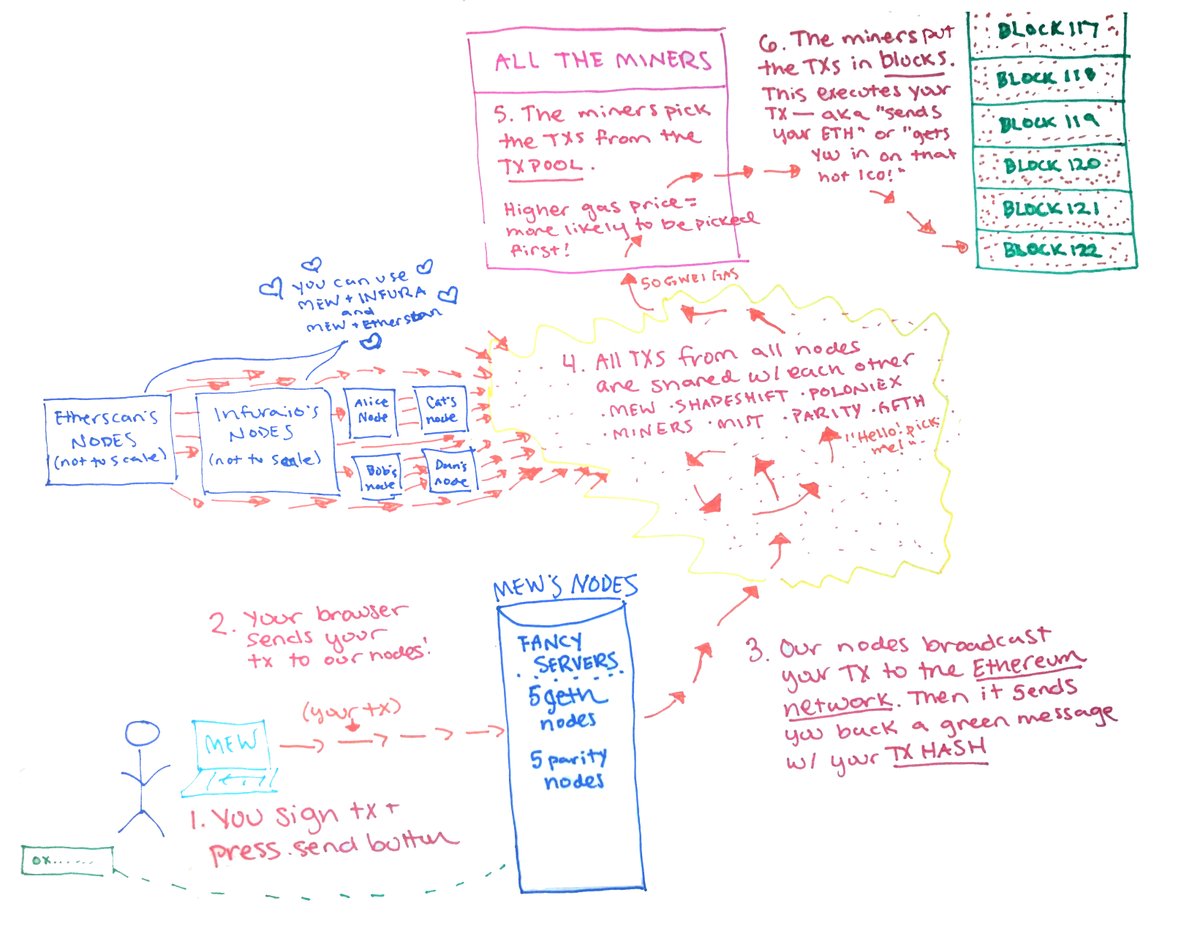 ALL THE MINERS
5. The miners pick
the TXs from the
TXPOOL.
Higher gas price =
more likely to be picked
first!
6. The miners put
the TXs in blocks.
This executes your
TX — aka "sends
your ETH" or "gets
you in on that
hot ICO!"
BLOCK 117
BLOCK 118
BLOCK 119
BLOCK 120
BLOCK 121
BLOCK 122
50 GWEI GAS
you can use
MEW + INFURA
and
MEW + Etherscan
Etherscan's
NODES
(not to scale)
Infuraio's
NODES
(not to scale)
Alice
Node
Cat's
node
Bob's
node
Dan's
node
4. All TXs from all nodes
are shared w/ each other
· MEW · SHAPESHIFT · POLONIEX
· MINERS · MIST · PARITY · GETH
"Hello! pick
me!"
MEW'S NODES
FANCY
SERVERS
5 geth
nodes
5 parity
nodes
2. Your browser
sends your
tx to our nodes!
(your tx)
MEW
1. You sign tx +
press send button
0x......
3. Our nodes broadcast
your TX to the Ethereum
network. Then it sends
you back a green message
w/ your TX HASH